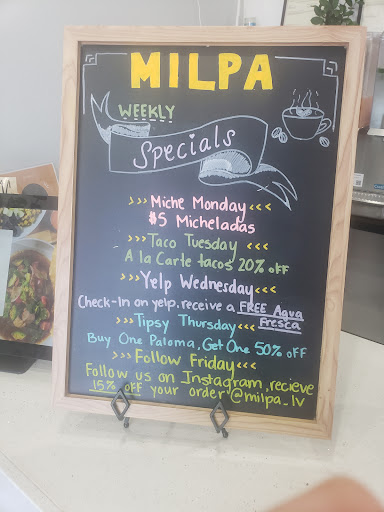 MILPA
WEEKLY
Specials
>>> Miche Monday <<<
$5 Micheladas
>>> Taco Tuesday <<<
A la Carte tacos 20% off
>>> Yelp Wednesday <<<
Check-In on yelp, receive a FREE Agua
Fresca
>>> Tipsy Thursday <<<
Buy One Paloma, Get One 50% off
>>> Follow Friday <<<
Follow us on Instagram, recieve
15% off your order @milpa_lv